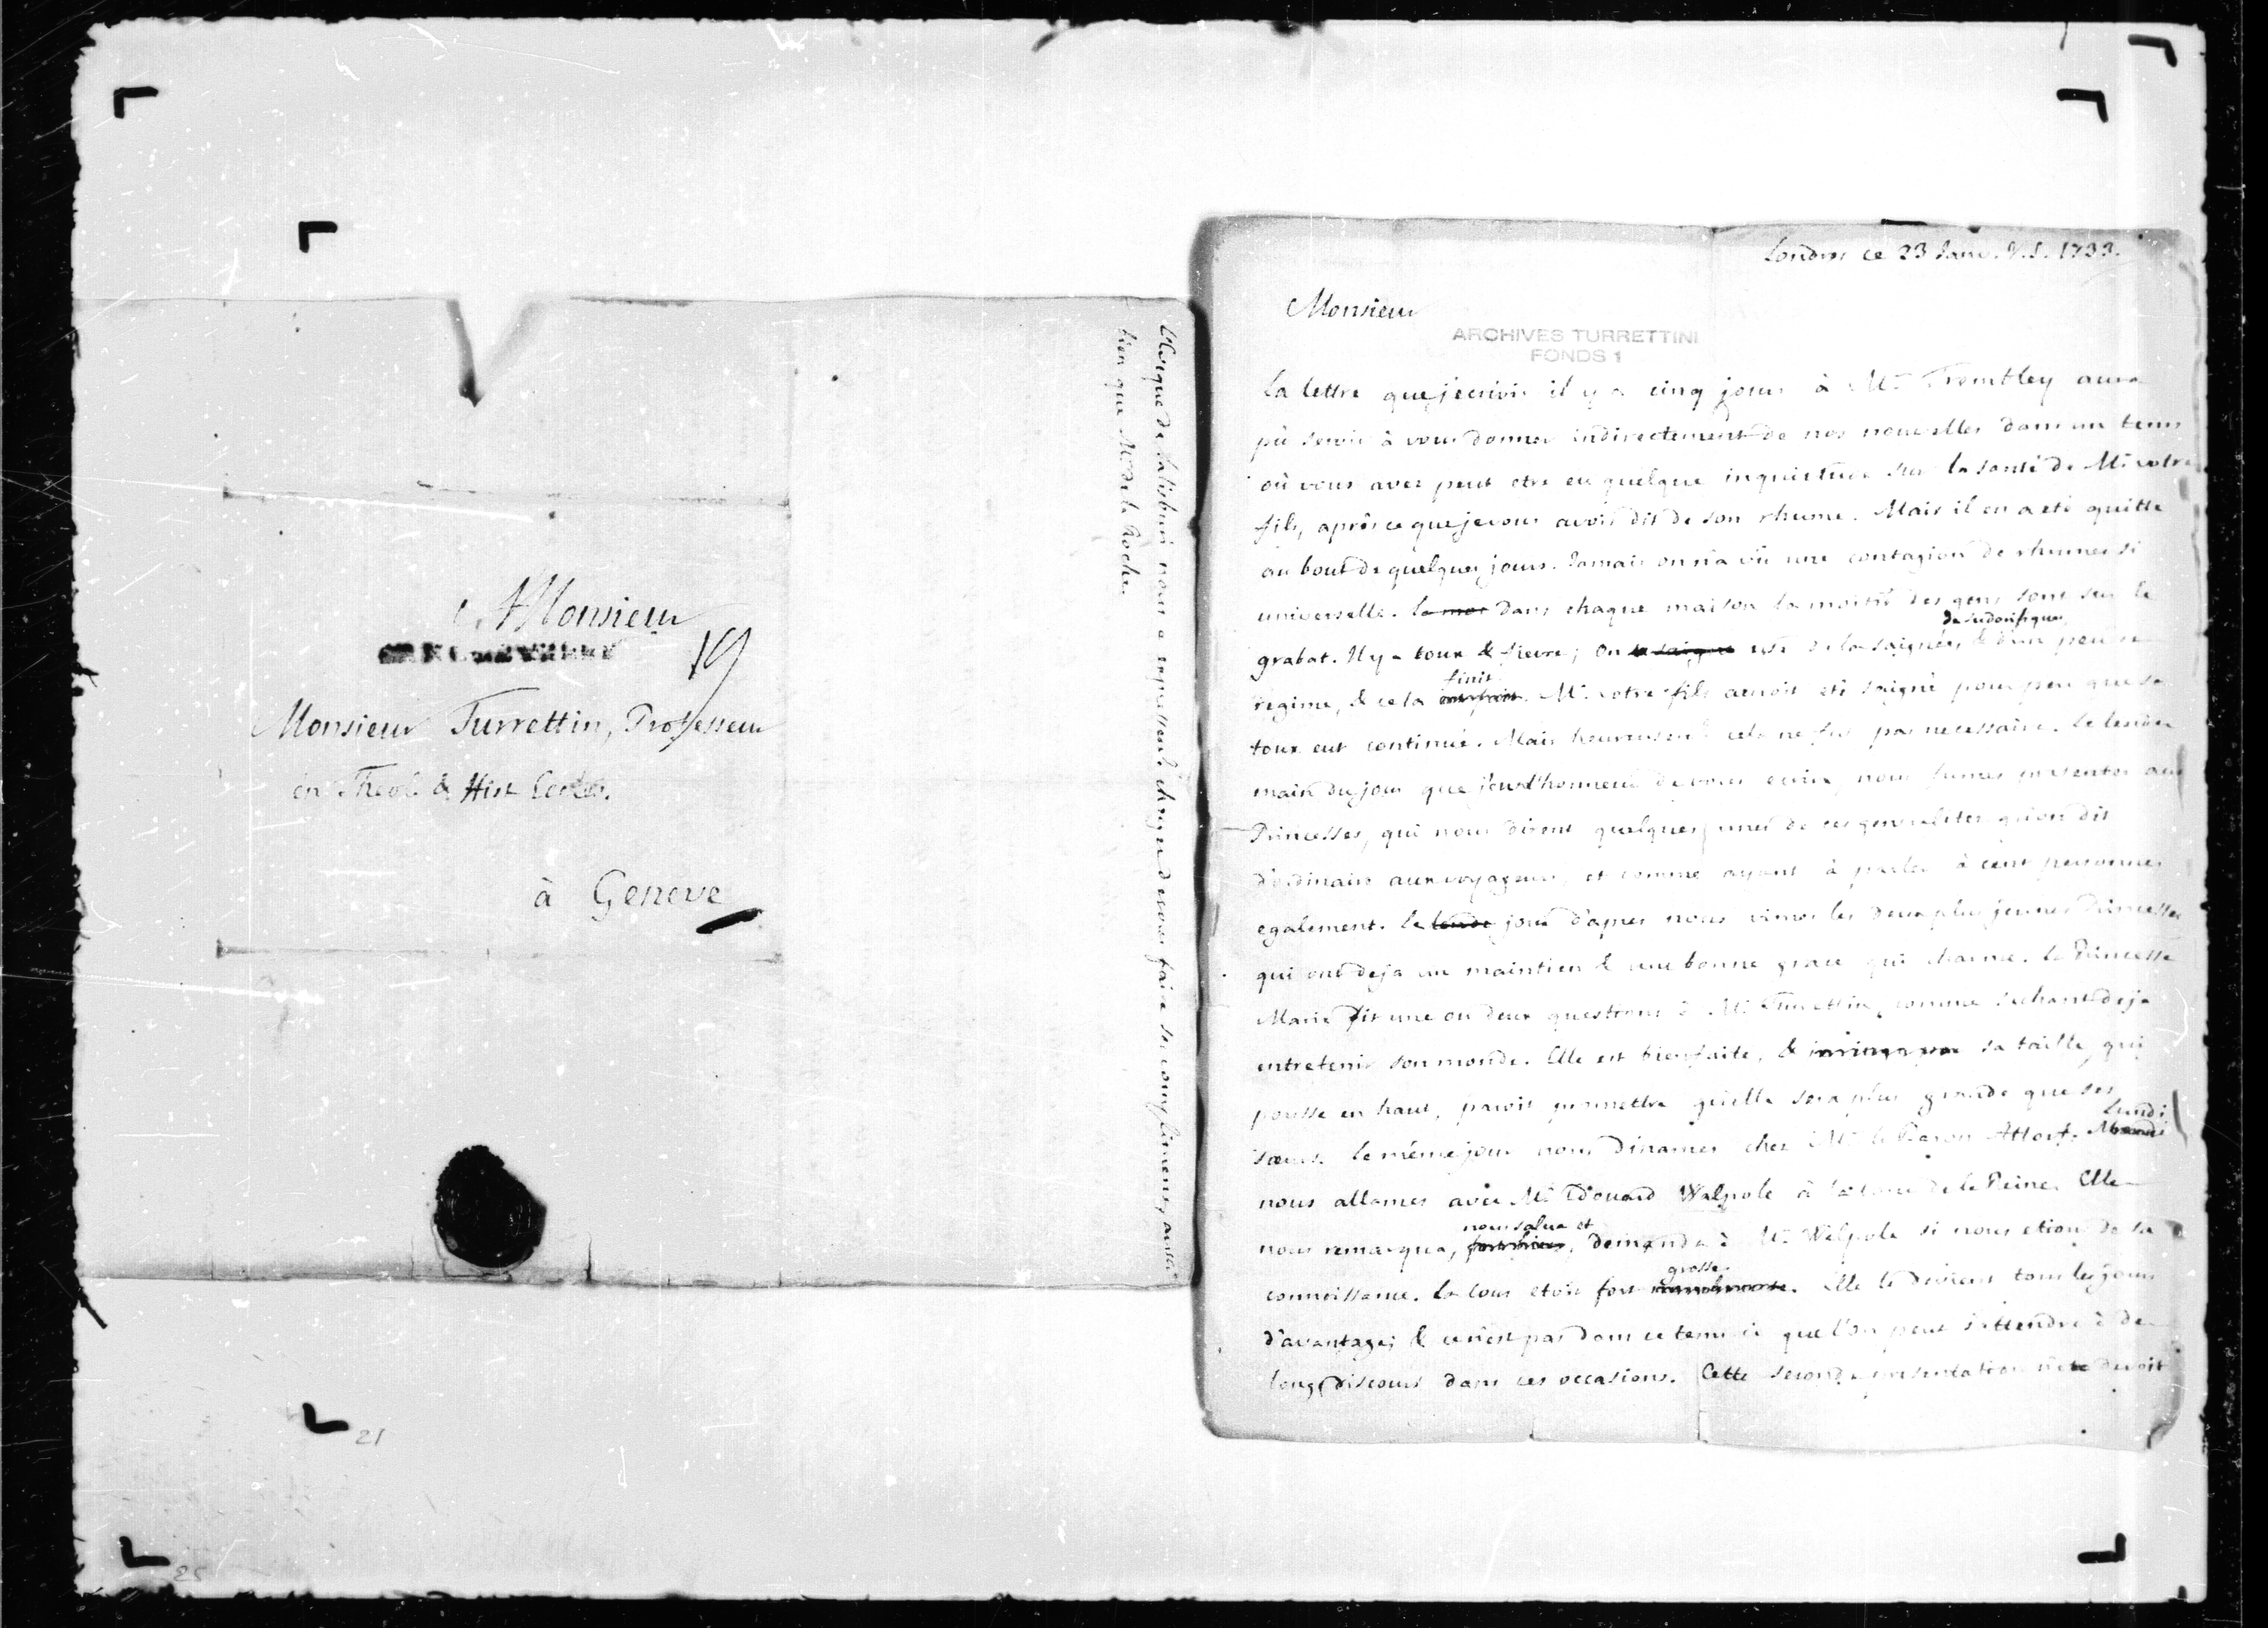 L'Eveque de Salisburi nous a expressement chargé de vous faire ses complimens, aussi
bien que Mr. de la Roche.
A Monsieur
19
Monsieur Turrettin, Professeur
en Theol. & Hist. Eccles.
à Geneve
21
25
Londres ce 23 Janv. V.S. 1733.
Monsieur
ARCHIVES TURRETTINI
FONDS 1
La lettre que j'ecrivis il y a cinq jours à Mr. Trembley aura
pû servir à vous donner indirectement de nos nouvelles dans un tems
où vous avez peut etre eu quelque inquietude sur la santé de Mr. votre
fils, après ce que je vous avois dit de son rhume. Mais il en a eté quitte
au bout de quelques jours. Jamais on n'a vû une contagion de rhumes si
universelle. Dans chaque maison la moitié des gens sont sur le
de sudorifiques
grabat. Il y a toux & fievre; on use de la saignée, & d'un peu de
finit
regime, & cela. Mr. votre fils auroit eté saigné pour peu que sa
toux eut continué. Mais heureusemt. cela ne fut pas necessaire. Le lende
main du jour que j'eus l'honneur de vous ecrire, nous fumes presentez aux
Princesses, qui nous dirent quelques unes de ces generalitez qu'on dit
d'ordinaire aux voyageurs, et comme ayant à parler à cent personnes
egalement. Le jour d'apres nous vimes les deux plus jeunes Princesses
qui ont deja un maintien & une bonne grace qui charme. La Princesse
Marie fit une ou deux questions à Mr. Turrettin, comme sachant deja
entretenir son monde. Elle est bien faite, & sa taille, qui
pousse en haut, paroit promettre qu'elle sera plus grande que ses
Lundi
sœurs. Le même jour nous dinames chez Mr. le Baron Attorf.
nous allames avec Mr. Edouard Walpole à la cour de la Reine. Elle
nous salua et
nous remarqua, demanda à Mr. Walpole si nous etions de sa
grosse
connoissance. La cour etoit fort. Elle le devient tous les jours
d'avantage; & ce n'est pas dans ce tems ci que l'on peut s'attendre à de
longs discours dans ces occasions. Cette seconde presentation devoit